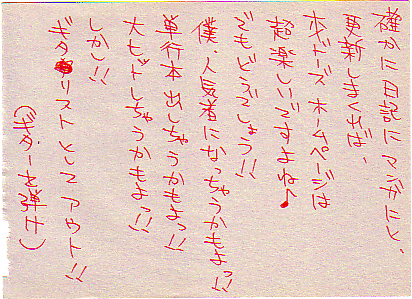 確かに日記にマンガにと、
更新しまくれば、
ホドーズホームページは
超楽しいですよね♪
でもどうでしょう!!
僕、人気者になっちゃうかもよっ!!
単行本出しちゃうかもよっ!!
大ヒットしちゃうかもよっ!!
しかし!!
ギタリストとしてアウト!!
(ギターを弾け)